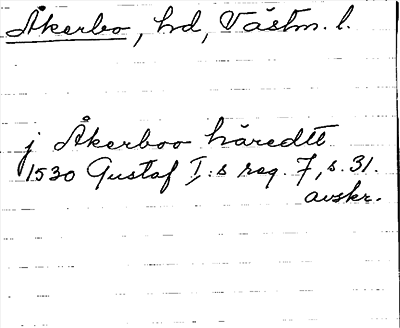 Åkerbo, hd, Västm. l.
j Åkerboo häredtt
1530 Gustaf I:s reg. 7, s. 31.
avskr.